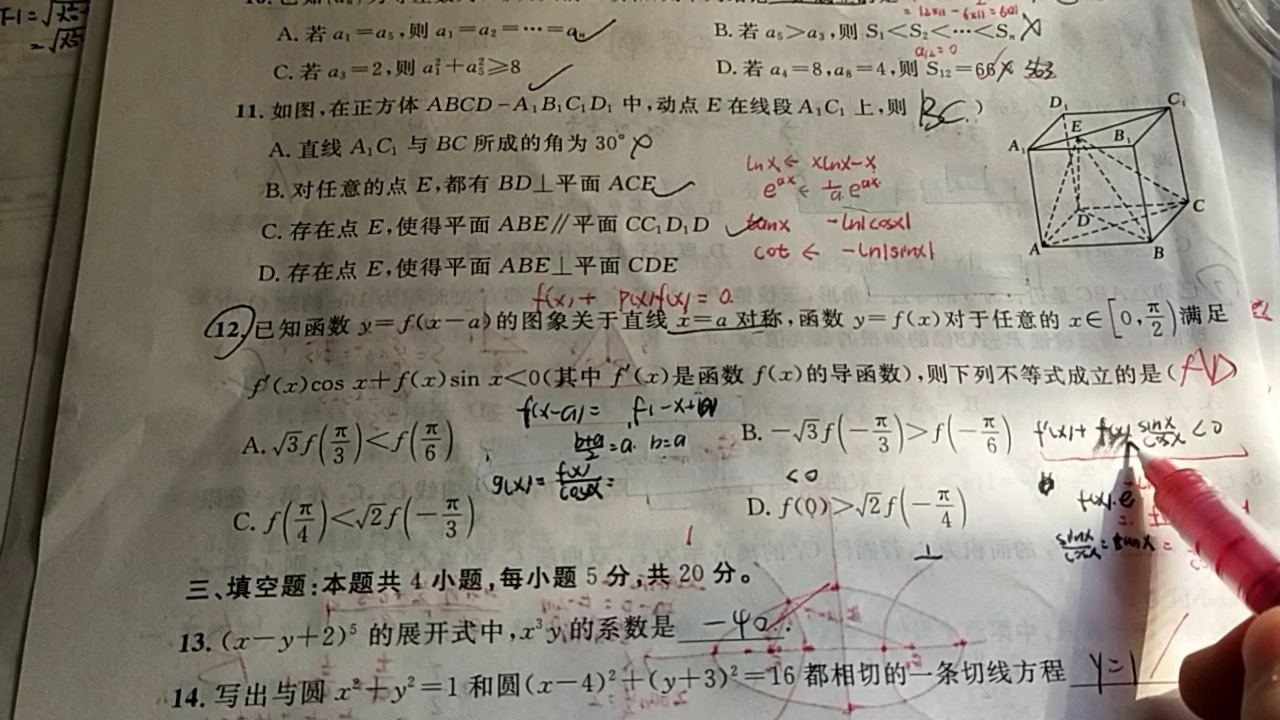 A. 若 a₁=a₅,则 a₁=a₂=⋯=aₙ
B. 若 a₅>a₃,则 S₁<S₂<⋯<Sₙ
C. 若 a₃=2,则 a₁²+a₅²≥8
D. 若 a₄=8,a₈=4,则 S₁₂=66
11. 如图,在正方体 ABCD-A₁B₁C₁D₁ 中,动点 E 在线段 A₁C₁ 上,则 BC )
A. 直线 A₁C₁ 与 BC 所成的角为 30°
B. 对任意的点 E,都有 BD⊥平面 ACE
C. 存在点 E,使得平面 ABE∥平面 CC₁D₁D
D. 存在点 E,使得平面 ABE⊥平面 CDE
lnx ← xlnx-x
e^{ax} ← 1/a e^{ax}
tanx -ln|cosx|
cot ← -ln|sinx|
D₁ C₁ E B₁ A₁ D C A B
12. 已知函数 y=f(x-a)的图象关于直线 x=a 对称,函数 y=f(x)对于任意的 x∈[0,π/2)满足
f′(x)cos x+f(x)sin x<0(其中 f′(x)是函数 f(x)的导函数),则下列不等式成立的是(
A. √3f(π/3)<f(π/6)
B. -√3f(-π/3)>f(-π/6)
f′(x)+ f(x) sinx/cosx <0
(b+a)/2=a. b=a
g(x)= f(x)/cosx =
<0
C. f(π/4)<√2f(-π/3)
D. f(0)>√2f(-π/4)
sinx/cosx = tanx =
三、填空题:本题共 4 小题,每小题 5 分,共 20 分。
13. (x-y+2)⁵ 的展开式中,x³y 的系数是 -40.
14. 写出与圆 x²+y²=1 和圆(x-4)²+(y+3)²=16 都相切的一条切线方程 y=1